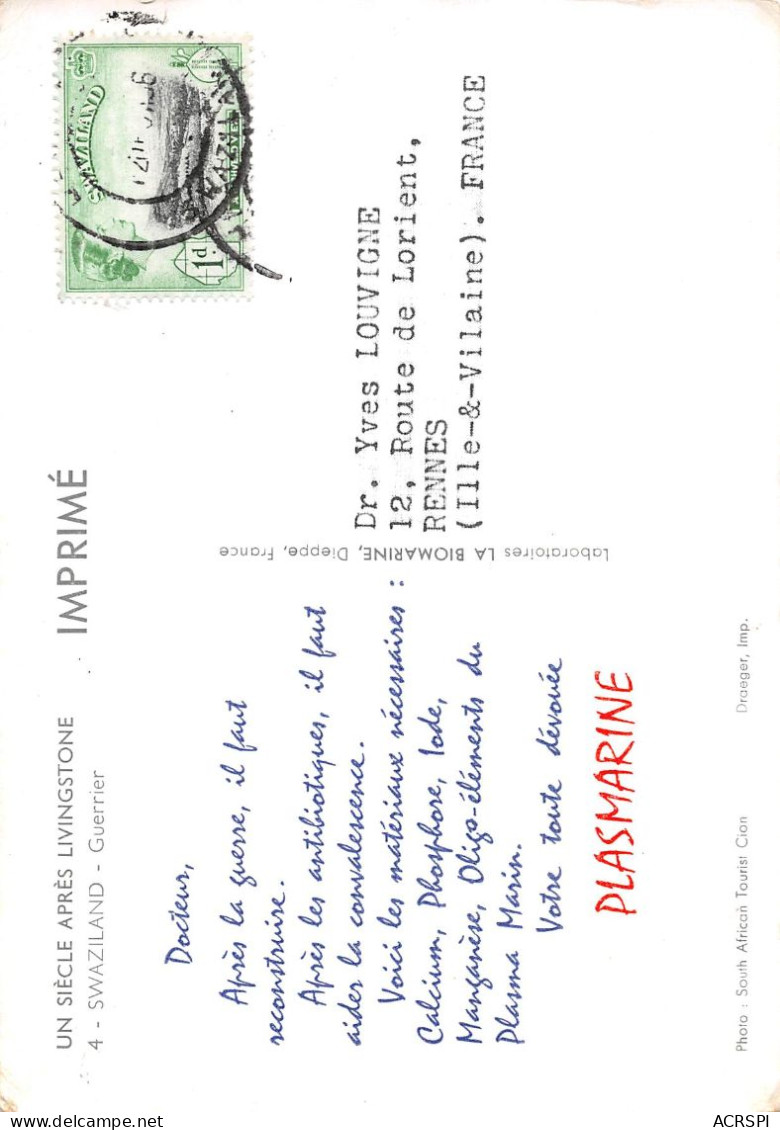 UN SIÈCLE APRÈS LIVINGSTONE
4 - SWAZILAND - Guerrier
IMPRIMÉ
SWAZILAND
1d.
Docteur,
Après la guerre, il faut
reconstruire.
Après les antibiotiques, il faut
aider la convalescence.
Voici les matériaux nécessaires :
Calcium, Phosphore, Iode,
Manganèse, Oligo-éléments du
Plasma Marin.
Votre toute dévouée
PLASMARINE
Laboratoires LA BIOMARINE, Dieppe, France
Dr. Yves LOUVIGNE
12, Route de Lorient,
RENNES
(Ille-&-Vilaine). FRANCE
Photo : South African Tourist Cion
Draeger, Imp.
ACRSPI